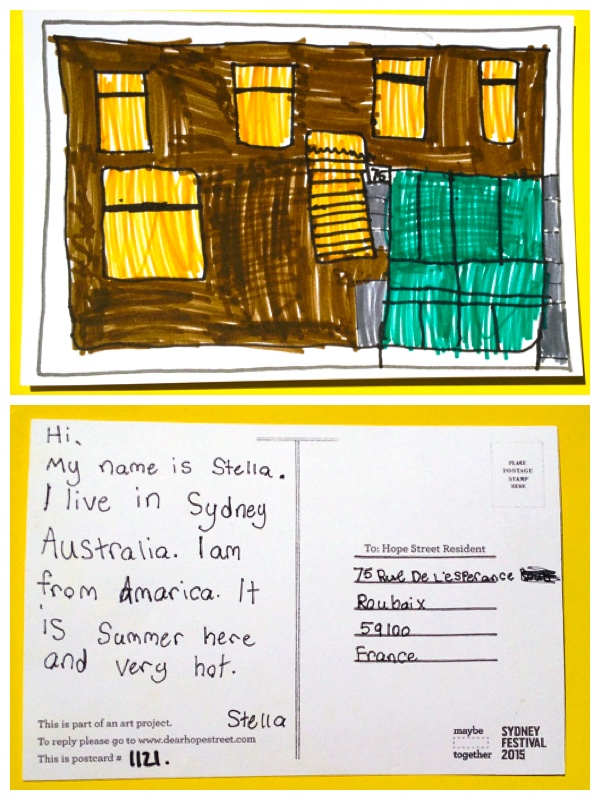 75
Hi.
My name is Stella.
I live in Sydney
Australia. I am
from Amarica. It
is Summer here
and very hot.
Stella
This is part of an art project.
To reply please go to www.dearhopestreet.com
This is postcard # 1121.
PLEASE
POSTAGE
STAMP
HERE
To: Hope Street Resident
75 Rue De L'esperance
Roubaix
59100
France
maybe
together
SYDNEY
FESTIVAL
2015